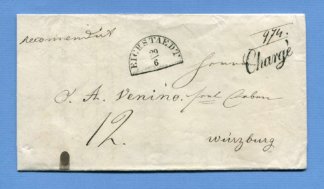 974.
recommendirt
EICHSTAEDT
29
6
Chargé
Herrn
J. A. Venino,
12.
Würzburg